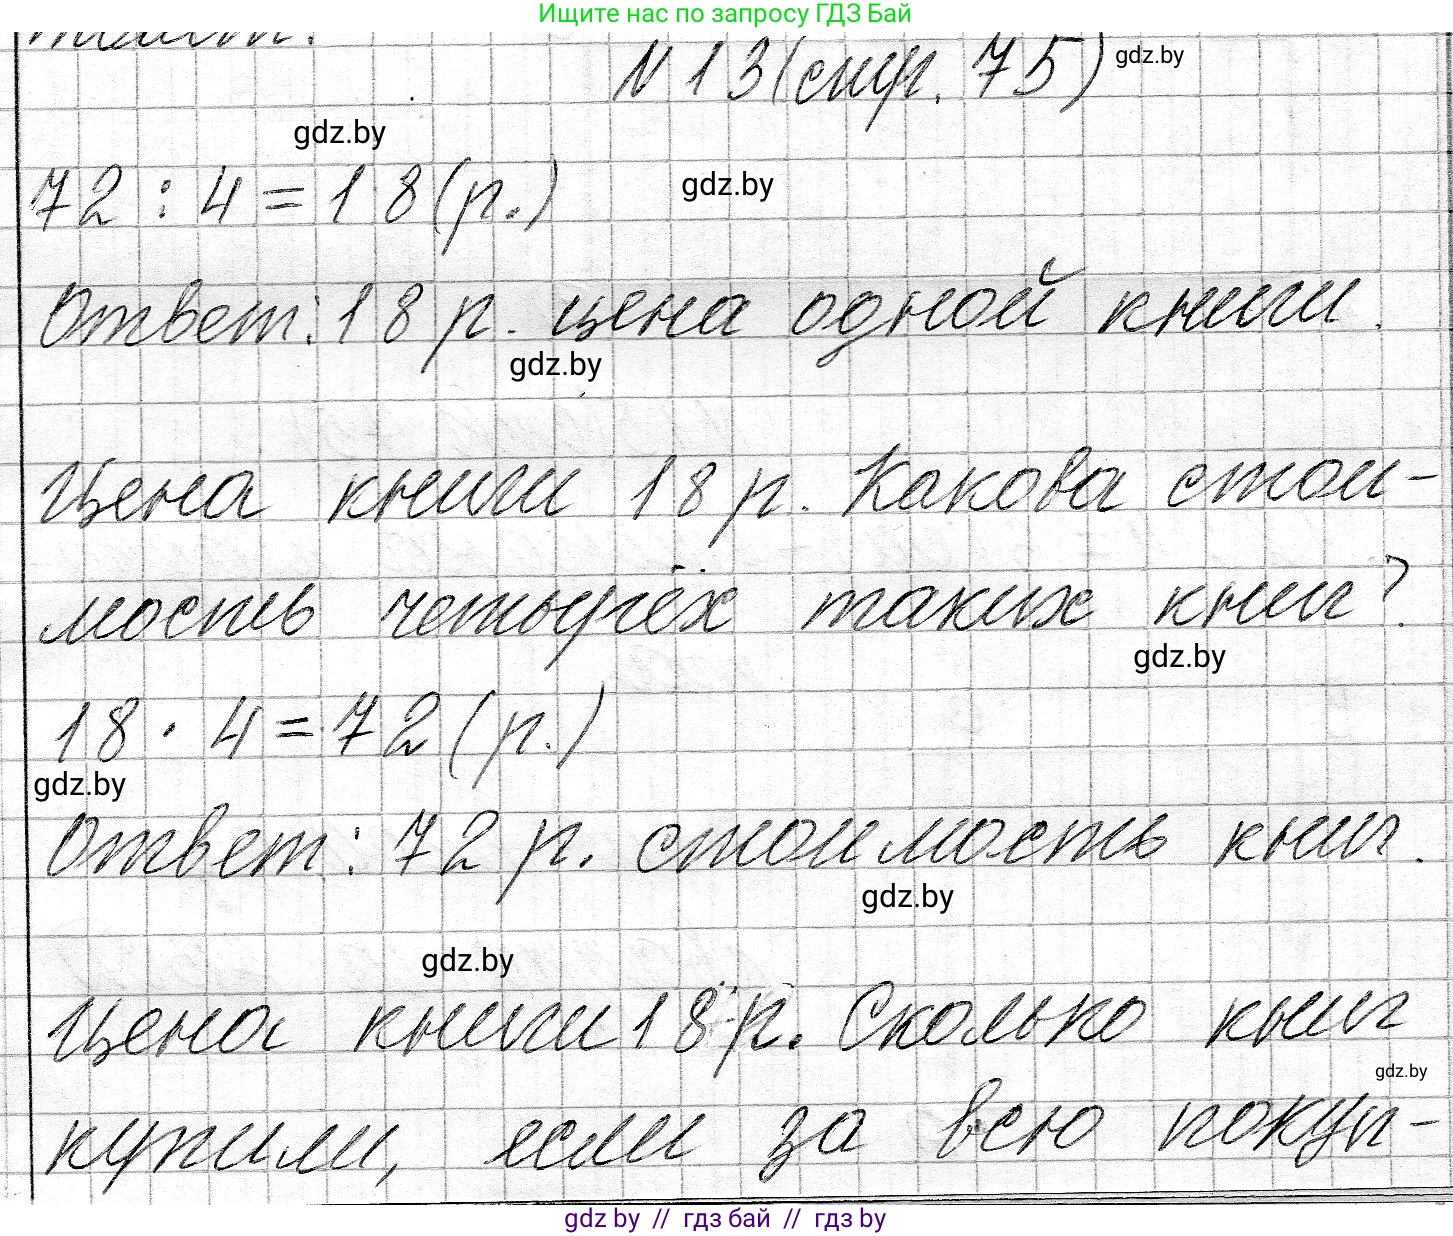 Ищите нас по запросу ГДЗ Бай
N 13 (стр. 75) gdz.by
gdz.by
72 : 4 = 18 (р.) gdz.by
Ответ: 18 р. цена одной книги.
gdz.by
Цена книги 18 р. Какова стои-
мость четырёх таких книг?
gdz.by
18 · 4 = 72 (р.)
gdz.by
Ответ: 72 р. стоимость книг.
gdz.by
gdz.by
Цена книги 18 р. Сколько книг
gdz.by
купили, если за всю покуп-
gdz by // гдз бай // гдз by